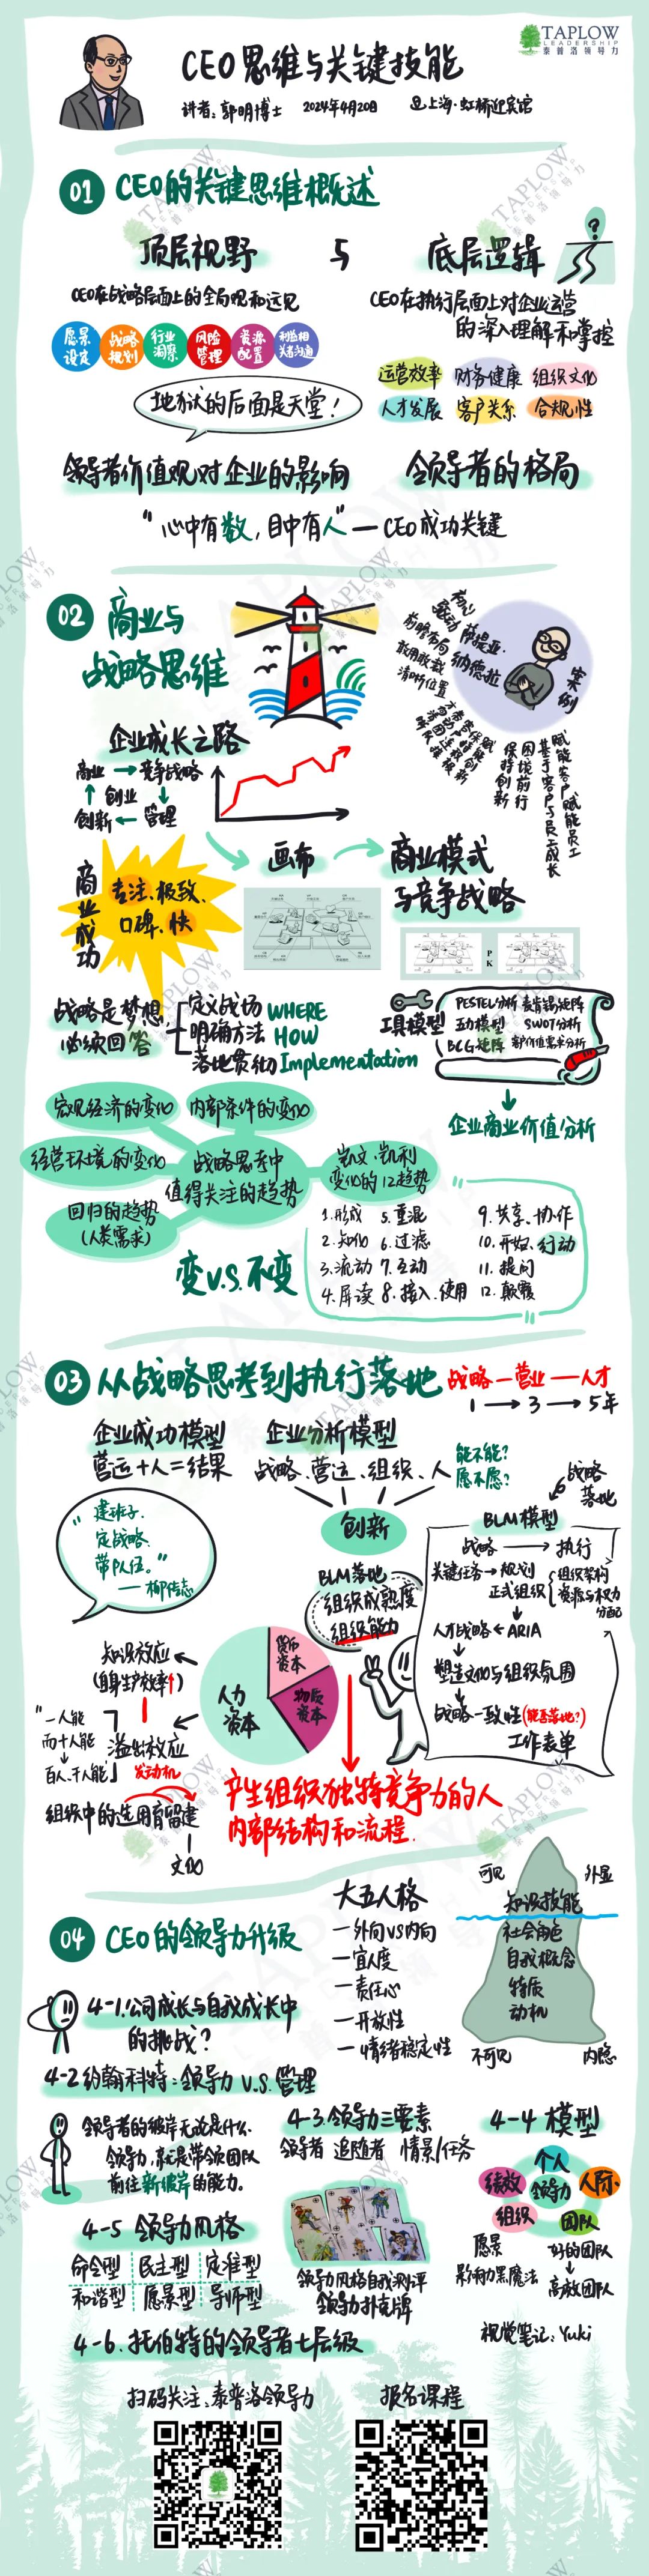 TAPLOW
LEADERSHIP
泰普洛领导力
CEO思维与关键技能
讲者:郭明博士 2024年4月20日 上海·虹桥迎宾馆
01 CEO的关键思维概述
顶层视野 与 底层逻辑
CEO在战略层面上的全局观和远见
CEO在执行层面上对企业运营
的深入理解和掌控
愿景设定 战略规划 行业洞察 风险管理 资源配置 利益相关者沟通
运营效率 财务健康 组织文化
人才发展 客户关系 合规性
地狱的后面是天堂!
领导者价值观对企业的影响 领导者的格局
“心中有数,目中有人”—CEO成功关键
02 商业与
战略思维
案例
萨提亚·
纳德拉
前瞻布局
清晰位置
保持创新
困境前行
基于客户与员工成长
赋能客户赋能员工
企业成长之路
商业→竞争战略
↑创业↓
创新←管理
商业成功
专注、极致、
口碑、快
画布
商业模式
与竞争战略
PK
战略是梦想
必须回答
定义战场 WHERE
明确方法 HOW
落地贯彻 Implementation
工具模型
PESTEL分析 麦肯锡矩阵
五力模型 SWOT分析
BCG矩阵 客户价值需求分析
企业商业价值分析
宏观经济的变化 内部条件的变化
经营环境的变化
战略思考中
值得关注的趋势
回归的趋势
(人类需求)
凯文·凯利
变化的12趋势
变V.S.不变
1.形成 5.重混 9.共享、协作
2.知化 6.过滤 10.开始、行动
3.流动 7.互动 11.提问
4.屏读 8.接入、使用 12.颠覆
03 从战略思考到执行落地
战略—营业—人才
1→3→5年
企业成功模型
营运+人=结果
企业分析模型
战略、营运、组织、人
能不能?
愿不愿?
创新
“建班子、
定战略、
带队伍。”
——柳传志
战略
落地
BLM模型
战略→执行
关键任务→规划
正式组织
组织架构
资源与权力
分配
人才战略←ARIA
塑造文化与组织氛围
战略一致性(能否落地?)
工作表单
BLM落地
组织成熟度
组织能力
货币资本
物质资本
人力资本
知识效应
(自身生产效率↑)
溢出效应
“一人能
而十人能
百人、千人能”
发动机
组织中的选用育留建
文化
产生组织独特竞争力的人
内部结构和流程.
04 CEO的领导力升级
大五人格
—外向VS内向
—宜人度
—责任心
—开放性
—情绪稳定性
可见 外显
知识技能
社会角色
自我概念
特质
动机
不可见 内隐
4-1.公司成长与自我成长中
的挑战?
4-2约翰科特:领导力V.S.管理
领导者的彼岸无论是什么.
领导力,就是带领团队
前往新彼岸的能力.
4-3.领导力三要素
领导者 追随者 情景/任务
4-4模型
个人
绩效 领导力 人际
组织 团队
愿景
影响力黑魔法
好的团队
↓
高效团队
4-5 领导力风格
命令型 民主型 定准型
和谐型 愿景型 导师型
领导力风格自我测评
领导力扑克牌
4-6.托伯特的领导者七层级
视觉笔记:Yuki
扫码关注:泰普洛领导力 报名课程